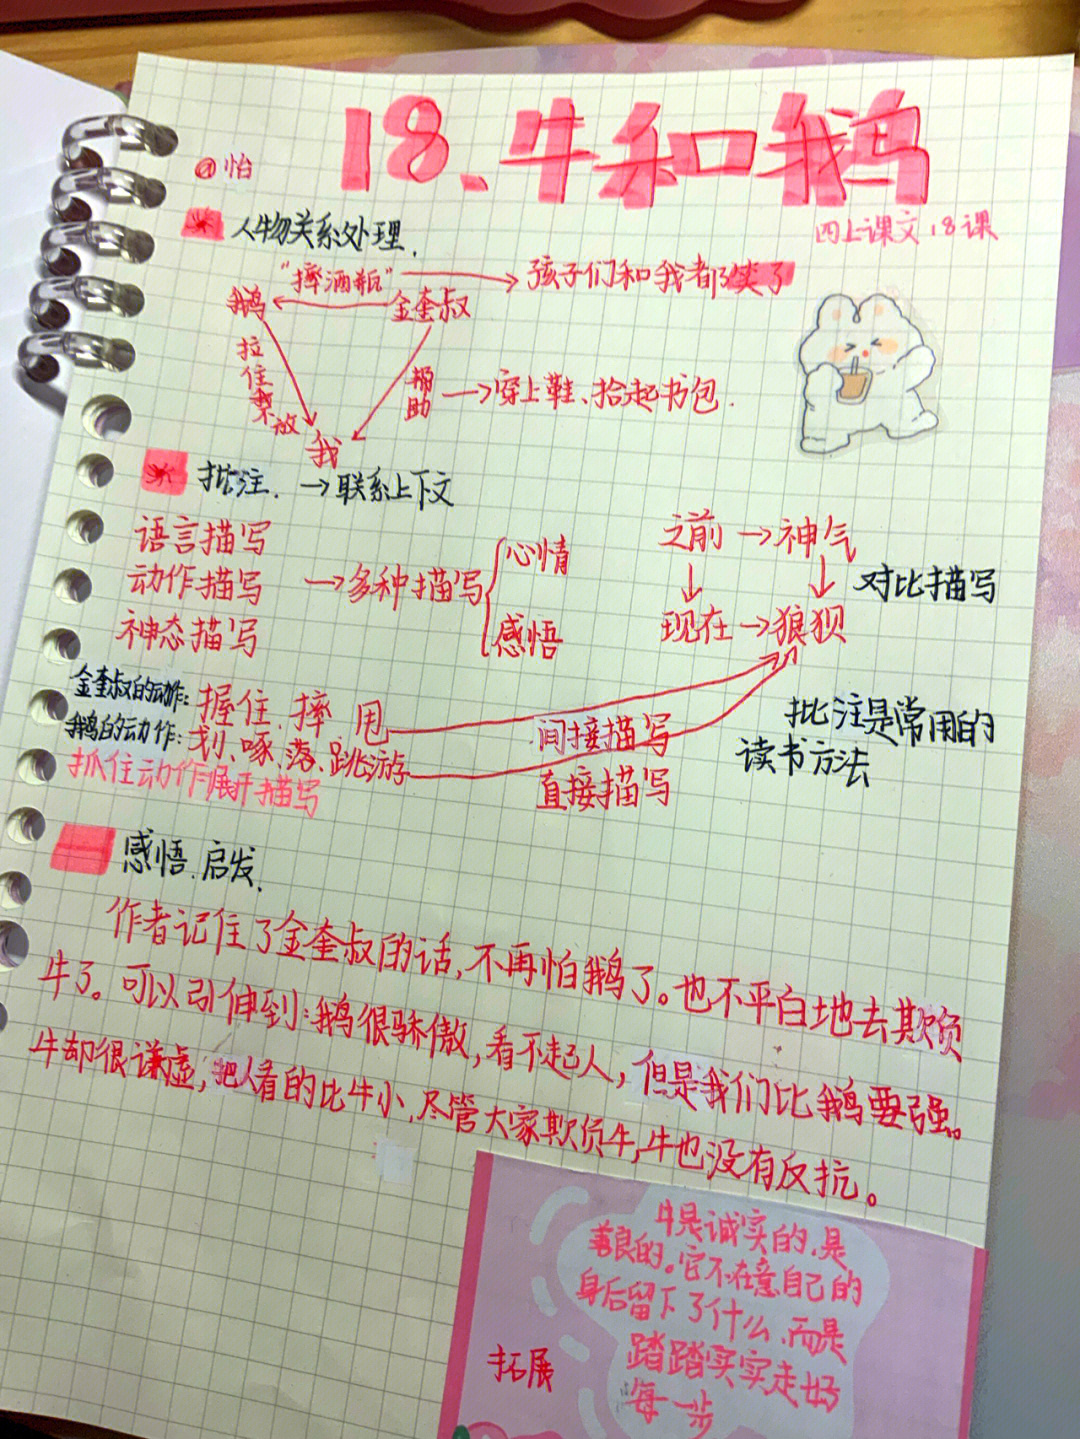 18、牛和鹅
@怡
四上课文18课
人物关系处理.
"摔酒瓶" → 孩子们和我都笑了
鹅 ← 金奎叔
拉住來放
帮助 → 穿上鞋、拾起书包.
我
批注. → 联系上下文
语言描写
动作描写 → 多种描写 { 心情
神态描写
感悟
之前 → 神气
↓ ↓ 对比描写
现在 → 狼狈
金奎叔的动作: 握住、摔 甩
鹅的动作: 划、啄、落、跳游
抓住动作展开描写
间接描写
直接描写
批注是常用的
读书方法
感悟.启发.
作者记住了金奎叔的话,不再怕鹅了。也不平白地去欺负
牛了。可以引伸到:鹅很骄傲,看不起人,但是我们比鹅要强。
牛却很谦虚,把人看的比牛小,尽管大家欺负牛,牛也没有反抗。
拓展
牛是诚实的,是
善良的。它不在意自己的
身后留下了什么,而是
踏踏实实走好
每一步